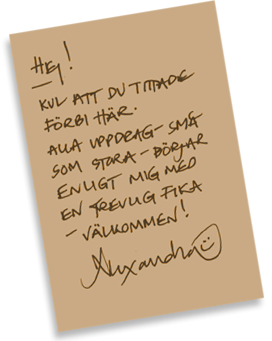 HEJ!
KUL ATT DU TITTADE
FÖRBI HÄR.
ALLA UPPDRAG - SMÅ
SOM STORA - BÖRJAR
ENLIGT MIG MED
EN TREVLIG FIKA
- VÄLKOMMEN!
Alexandra